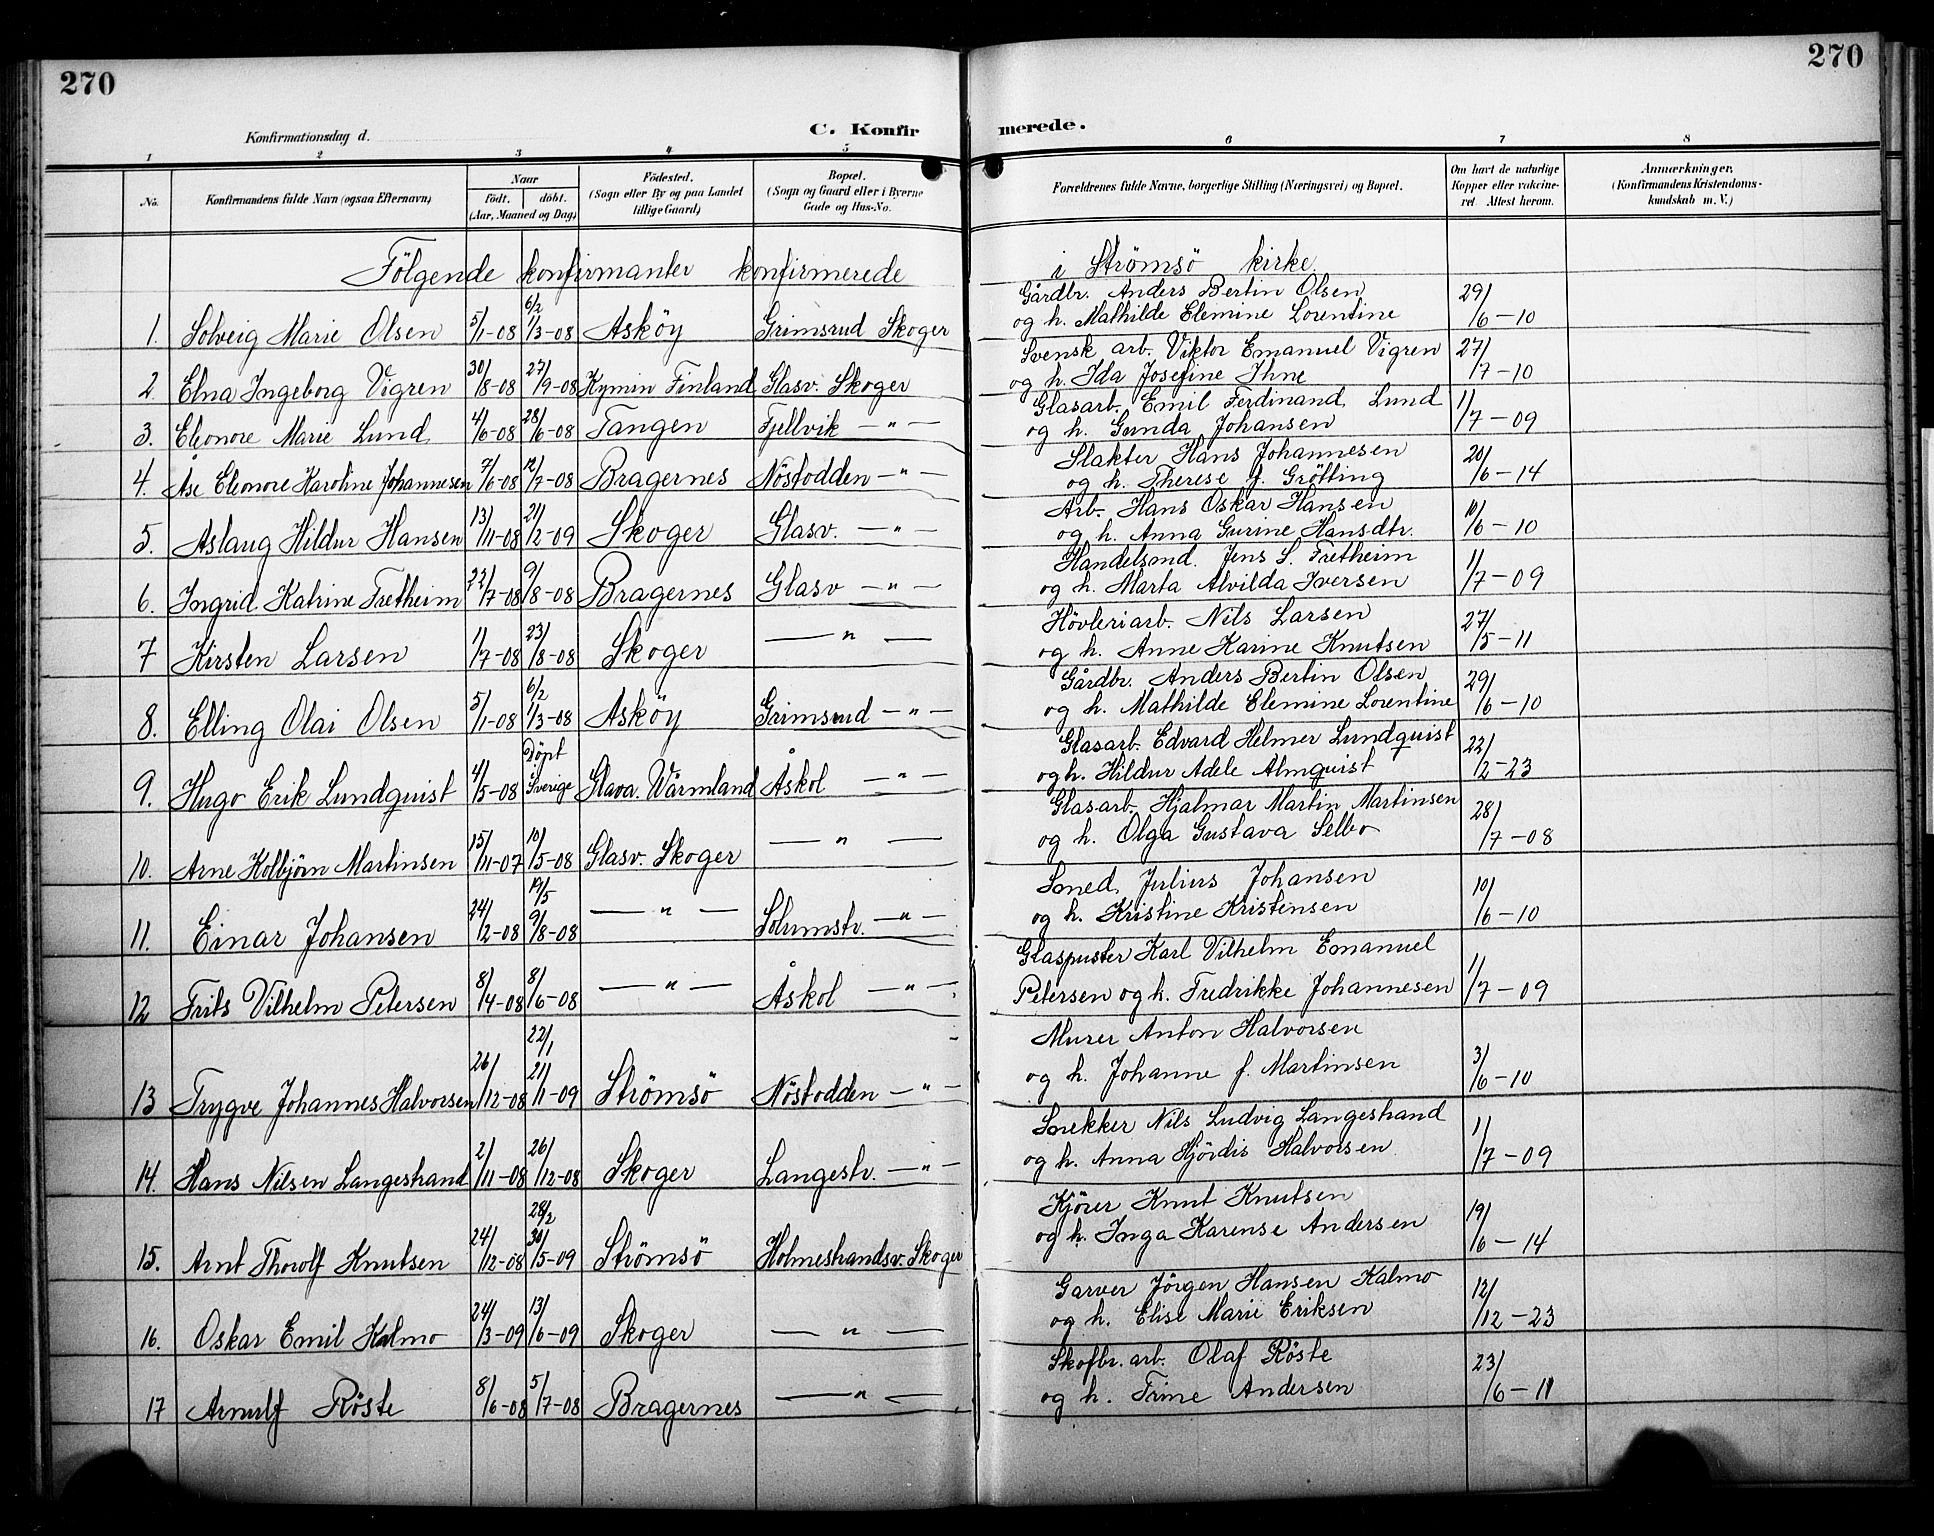 270
270
Konfirmationsdag d.
C. Konfirmerede.
1 2 3 4 5 6 7 8
No.
Konfirmandens fulde Navn (ogsaa Efternavn)
Naar
født. døbt.
(Aar, Maaned og Dag)
Fødested.
(Sogn eller By og paa Landet
tillige Gaard)
Bopæl.
(Sogn og Gaard eller i Byerne
Gade og Hus-No.
Forældrenes fulde Navne, borgerlige Stilling (Næringsvei) og Bopæl.
Om havt de naturlige
Kopper eller vakcine-
ret. Attest herom.
Anmærkninger.
(Konfirmandens Kristendoms-
kundskab m. V.)
Fölgende konfirmanter konfirmerede i Strömsö kirke.
1. Solveig Marie Olsen 5/1-08 6/2 1/3-08 Asköy Grimsrud Skoger Gårdbr. Anders Bertin Olsen 29/6-10
og h. Mathilde Elemine Lorentine
2. Elna Ingeborg Vigren 30/8-08 27/9-08 Kymin Finland Glasv. Skoger Svensk arb. Viktor Emanuel Vigren 27/7-10
og h. Ida Josefine Ihne
3. Eleonore Marie Lund 4/6-08 28/6-08 Tangen Fjellvik — " — Glasarb. Emil Ferdinand Lund 1/7-09
og h. Gunda Johansen
4. Åse Eleonore Karoline Johannesen 7/6-08 12/7-08 Bragernes Nöstodden — " — Slakter Hans Johannesen 20/6-14
og h. Therese f. Grötting
5. Aslaug Hildur Hansen 13/11-08 21/2-09 Skoger Glasv. — " — Arb. Hans Oskar Hansen 10/6-10
og h. Anna Gurine Hansdtr.
6. Ingrid Katrine Fretheim 22/7-08 9/8-08 Bragernes Glasv — " — Handelsmd. Jens S. Fretheim 1/7-09
og h. Marta Alvilda Iversen
7 Kirsten Larsen 1/7-08 23/8-08 Skoger — " — Hövleriarb. Nils Larsen 27/5-11
og h. Anne Karine Knutsen
8. Elling Olai Olsen 5/1-08 6/2 1/3-08 Asköy Grimsrud — " — Gårdbr. Anders Bertin Olsen 29/6-10
og h. Mathilde Elemine Lorentine
9. Hugo Erik Lundquist 4/5-08 Döpt i Sverige Glava. Wärmland Åskol — " — Glasarb. Edvard Helmer Lundquist 22/2-23
og h. Hildur Adele Almquist
10. Arne Kolbjörn Martinsen 15/11-07 10/5-08 Glasv. Skoger — " — Glasarb. Hjalmar Martin Martinsen 28/7-08
og h. Olga Gustava Selbo
11. Einar Johansen 24/2-08 19/5 9/8-08 — " — Solumstr. — " — Smed Julius Johansen 10/6-10
og h. Kristine Kristensen
12 Frits Vilhelm Petersen 8/4-08 8/6-08 — " — Åskol — " — Glaspuster Karl Vilhelm Emanuel 1/7-09
Petersen og h. Fredrikke Johannesen
13 Trygve Johannes Halvorsen 26/12-08 22/1 21/1-09 Strömsö Nöstodden — " — Murer Anton Halvorsen 3/6-10
og h. Johanne f. Martinsen
14. Hans Nilsen Langestrand 2/11-08 26/12-08 Skoger Langestr. — " — Snekker Nils Ludvig Langestrand 1/7-09
og h. Anna Hjördis Halvorsen
15. Arnt Thorolf Knutsen 24/12-08 28/2 30/5-09 Strömsö Holmestrandsv. Skoger Kjörer Knut Knutsen 19/6-14
og h. Inga Karense Andersen
16. Oskar Emil Kalmo 24/3-09 13/6-09 Skoger — " — Garver Jörgen Hansen Kalmo 12/12-23
og h. Elise Marie Eriksen
17 Arnulf Röste 8/6-08 5/7-08 Bragernes — " — Skofbr. arb. Olaf Röste 23/6-11
og h. Trine Andersen